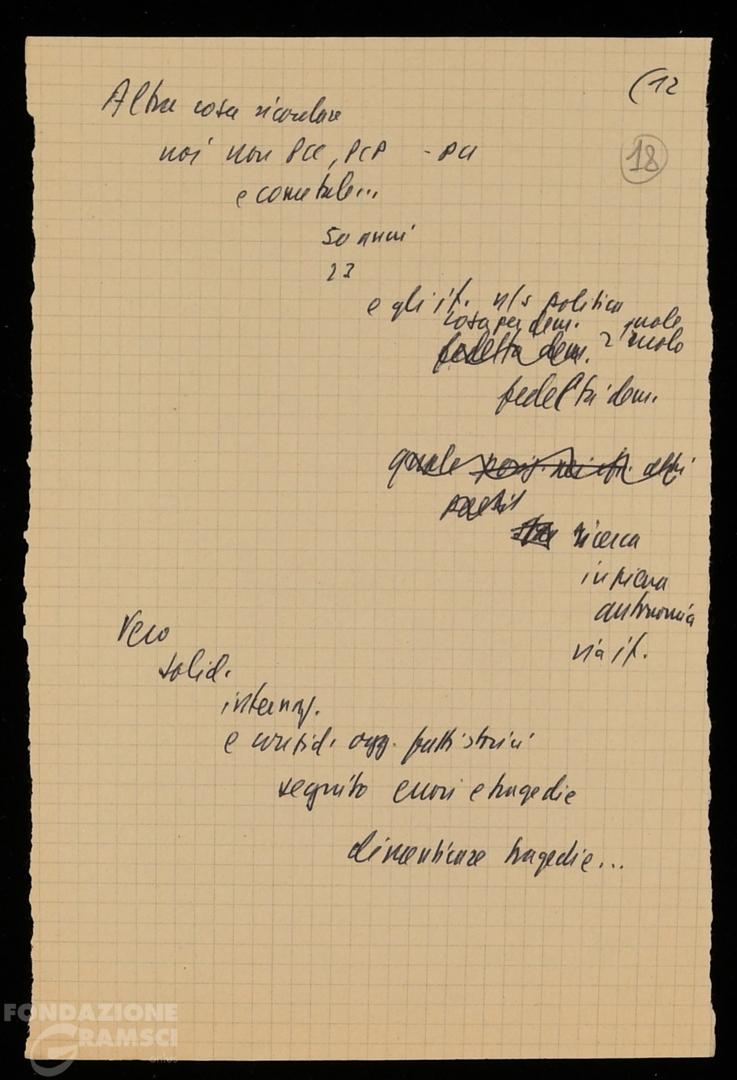 (12
18
Altra cosa ricordare
noi non PCE, PCP - PCI
e come tale...
50 anni
23
e gli it. n/s politica
cosa per dem. quale
fedeltà dem. ruolo
fedeltà dem.
quale altri
paesi
ricerca
in piena
autonomia
via it.
Vero
solid.
internaz.
e consid. ogg. fatti storici
seguito errori e tragedie
dimenticare tragedie...
FONDAZIONE
GRAMSCI
onlus